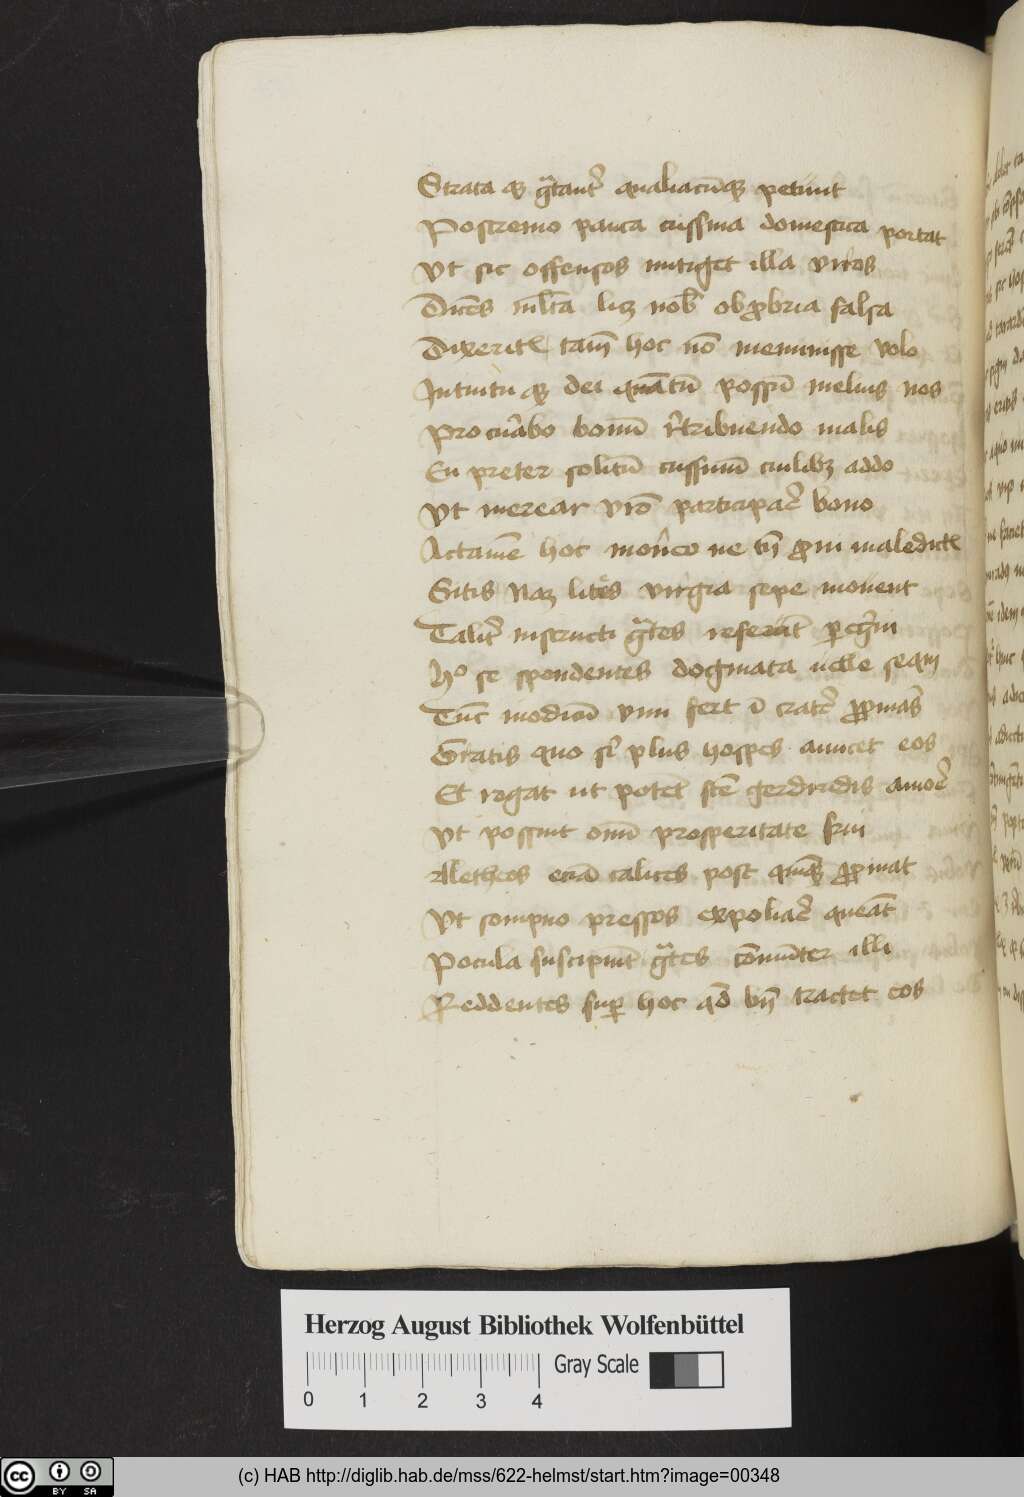 Strata qz gͣtant᷑ qualiacūqz petunt
Postremo pauca cussina domestica portat
Vt sic offensos mitiget illa viros
Dicēs ml̄ta licz nob᷑ obp̱bria falsa
Dixeritꝭ tam̄ hoc nō meminisse volo
Intuitu qz dei quātū possū melius nos
Procuᷓbo bonū r᷑tribuendo malis
En preter solitū cussinū cuilibz addo
Vt merear vr̄o participac᷑ bono
Attamē hoc mon᷑eo ne tn̄ p̱ni maledictꝭ
Sitis Naz lites virgia sepe mouent
Talit᷑ instructi gͣtes referūt pegͥni
Ho se spondentes dogmata uelle sequi
Tūc modicū vini fert ī crat᷑e p̱pinās
Gratis quo sī plus hospes amicet eos
Et rogat ut potēt stē gerdrudis amor᷑
Vt possint omī prosperitate frui
Alletheos eciā calices post quinqz p̱pinat
Vt sompno pressos expoliac᷑ queāt
Pocula suscipiūt gͣtes cōmūiter illi
Reddentes sup hoc qd̄ bn̄ tractet eos
Herzog August Bibliothek Wolfenbüttel
Gray Scale
0 1 2 3 4
cc BY SA
(c) HAB http://diglib.hab.de/mss/622-helmst/start.htm?image=00348